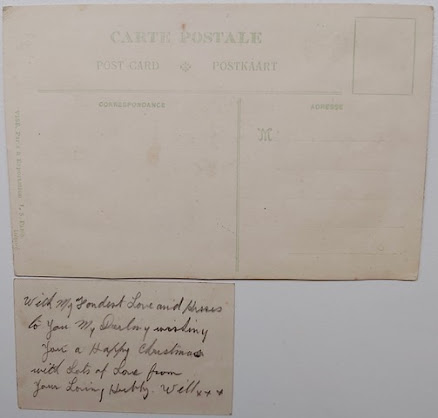 CARTE POSTALE
POST CARD POSTKAART
CORRESPONDANCE
ADRESSE
M
With My Fondest Love and Kisses
to You My Darling wishing
You a Happy Christmas
with Lots of Love from
Your Loving Hubby. Will x x x